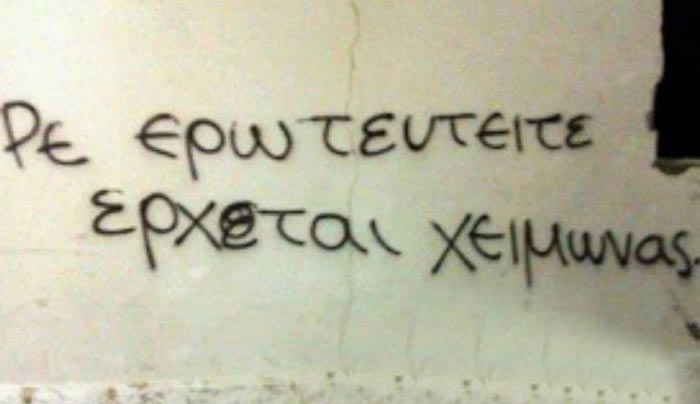 Ρε ερωτευτειτε
ερχεται χειμωνας.